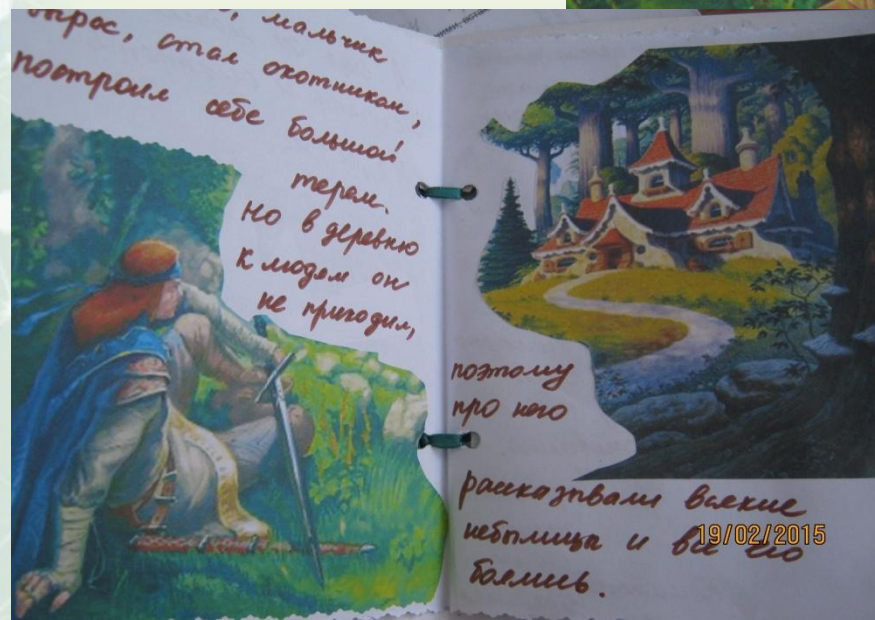 мальчик
вырос, стал охотником,
построил себе большой
терем.
Но в деревню
к людям он
не приходил,
поэтому
про него
рассказывали всякие
небылицы и все его
боялись.
19/02/2015